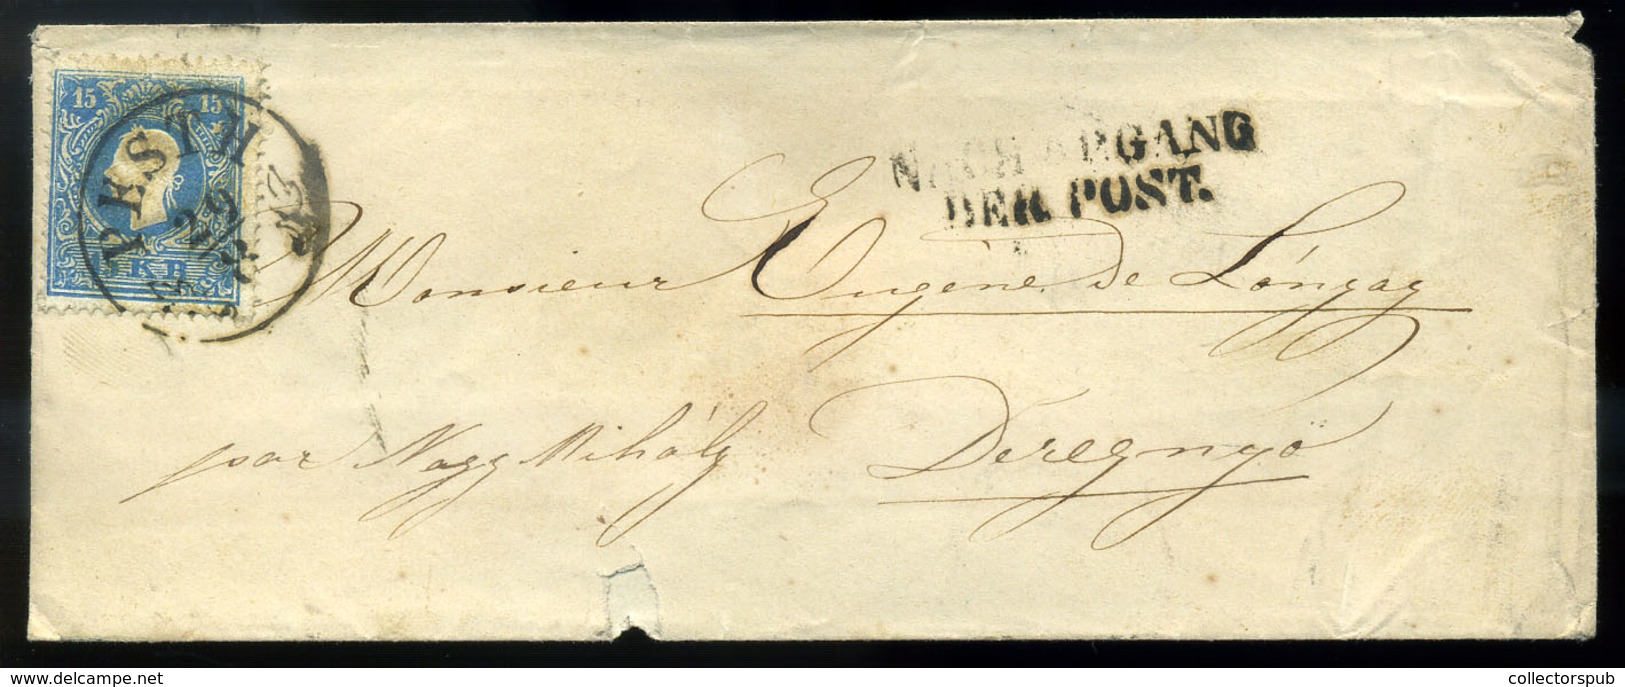 15 15
PESTH
KR
NACH ABGANG
DER POST.
Monsieur Eugène de Lónyay
par Nagy Mihály Deregnyö
delcampe.net
collectorspub